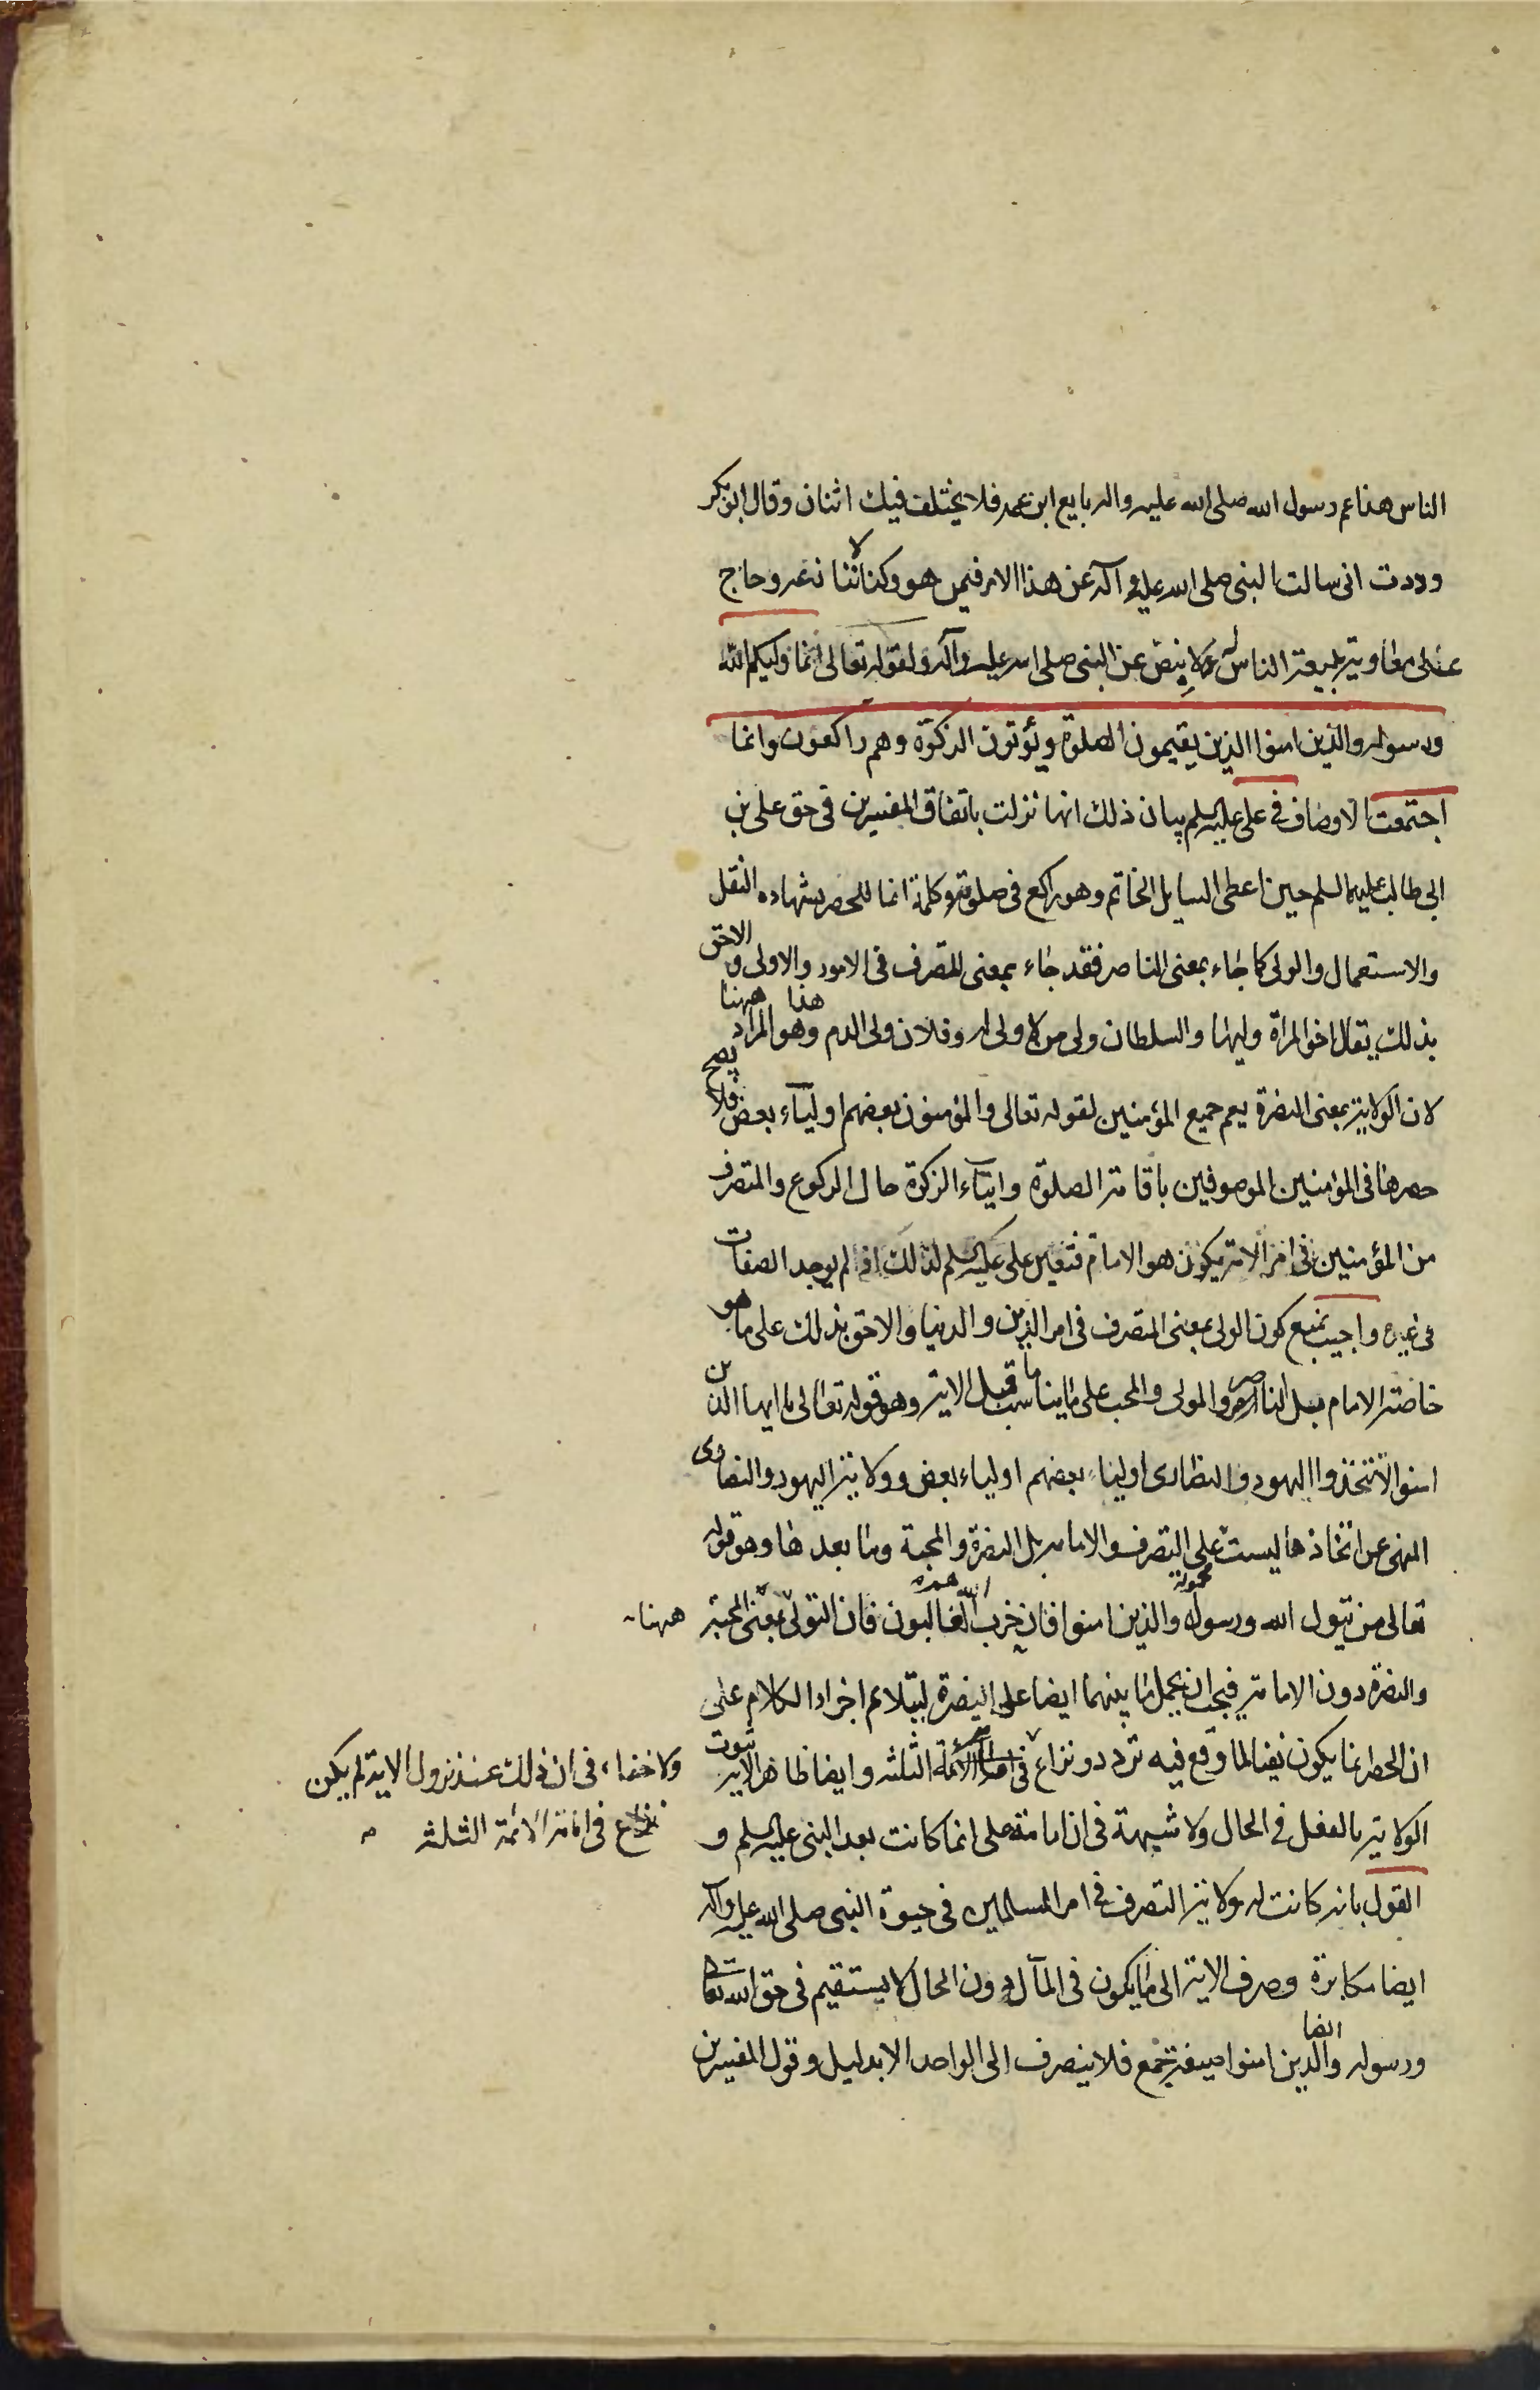 الناس هذا عم رسول الله صلى الله عليه واله بايع ابن عمه فلا يختلف فيك اثنان وقال ابوبكر
وددت انى سالت النبى صلى الله عليه وآله عن هذا الامر فيمن هو وكنا لا ننازعه وحاج
على معاوية ببيعة الناس له لا بنص عن النبى صلى الله عليه وآله ولقوله تعالى انما وليكم الله
ورسوله والذين امنوا الذين يقيمون الصلوة ويؤتون الزكوة وهم راكعون وانما
اجتمعت الاوصاف فى على عليه السلم بيان ذلك انها نزلت باتفاق المفسرين فى حق على بن
ابى طالب عليهما السلم حين اعطى السايل الخاتم وهو راكع فى صلوته وكلمة انما للحصر بشهاده النقل
والاستعمال والولى كما جاء بمعنى الناصر فقد جاء بمعنى المتصرف فى الامور والاولى و الاحق
بذلك يقال اخو المراة وليها والسلطان ولى من لا ولى له وفلان ولى الدم وهذا هو المراد ههنا
لان الولاية بمعنى النصرة يعم جميع المؤمنين لقوله تعالى والمؤمنون بعضهم اوليآء بعض فلا يصح
حصرها فى المؤمنين الموصوفين باقامة الصلوة وايتآء الزكوة حال الركوع والمتصرف
من المؤمنين فى امر الامة يكون هو الامام فتعين على عليه السلم لذلك اذ لم يوجد الصفات
فى غيره واجيب بمنع كون الولى بمعنى المتصرف فى امر الدين والدنيا والاحق بذلك على ما هو
خاصة الامام بل الناصر والمولى والمحب على ما يناسب ما قبل الاية وهو قوله تعالى يا ايها الذين
امنوا لا تتخذوا اليهود والنصارى اولياء بعضهم اولياء بعض وولاية اليهود والنصارى
المنهى عن اتخاذها ليست على التصرف والامامه بل النصرة والمحبة وما بعدها وهو قوله
محمولة
تعالى من يتول الله ورسوله والذين امنوا فان حزب الله هم الغالبون فان التولى بمعنى المحبة ههنا
والنصرة دون الامامة فيجب ان يحمل ما بينهما ايضا على النصرة ليتلائم اجزاء الكلام على
ان الحصر انما يكون نفيا لما وقع فيه تردد ونزاع فى امامة الائمة الثلثه وايضا ظاهر الاية ثبوت
ولا خفاء فى ان ذلك عند نزول الاية لم يكن
نزاع فى امامة الائمة الثلثه
الولاية بالفعل فى الحال ولا شبهة فى ان امامة على انما كانت بعد النبى عليه السلم و
القول بانه كانت له ولاية التصرف فى امر المسلمين فى حيوة النبى صلى الله عليه وآله
ايضا مكابرة وصرف الاية الى ما يكون فى المآل دون الحال لا يستقيم فى حق الله تعالى
ورسوله وايضا الذين امنوا صيغة جمع فلا ينصرف الى الواحد الا بدليل وقول المفسرين